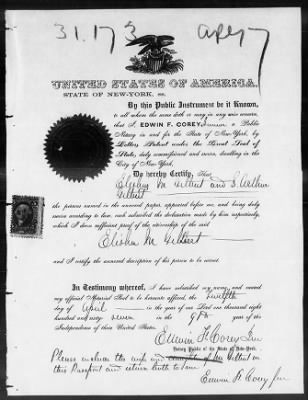 31.173
apr 7
UNITED STATES OF AMERICA.
STATE OF NEW-YORK, ss.
By this Public Instrument be it Known,
to all whom the same doth or may in any wise concern,
that I, EDWIN F. COREY, Junior, a Public
Notary in and for the State of New-York, by
Letters Patent under the Great Seal of
State, duly commissioned and sworn, dwelling in the
City of New-York,
Do hereby Certify, That
Elisha M Gilbert and S. Arthur
Gilbert
the persons named in the annexed paper, appeared before me, and being duly
sworn according to law, each subscribed the declaration made by him respectively,
which I deem sufficient proof of the citizenship of the said
Elisha M Gilbert
and I certify the annexed description of his person to be true.
In Testimony whereof, I have subscribed my name, and caused
my official Notarial Seal to be hereunto affixed, the twelfth
day of April in the year of our Lord one thousand eight
hundred and sixty seven in the 91st year of the
Independence of these United States.
Edwin F. Corey Jun
Notary Public of the State of New-York.
Please include the wife and of Mr Gilbert on
this Passport and return both to me
Edwin F. Corey Jun